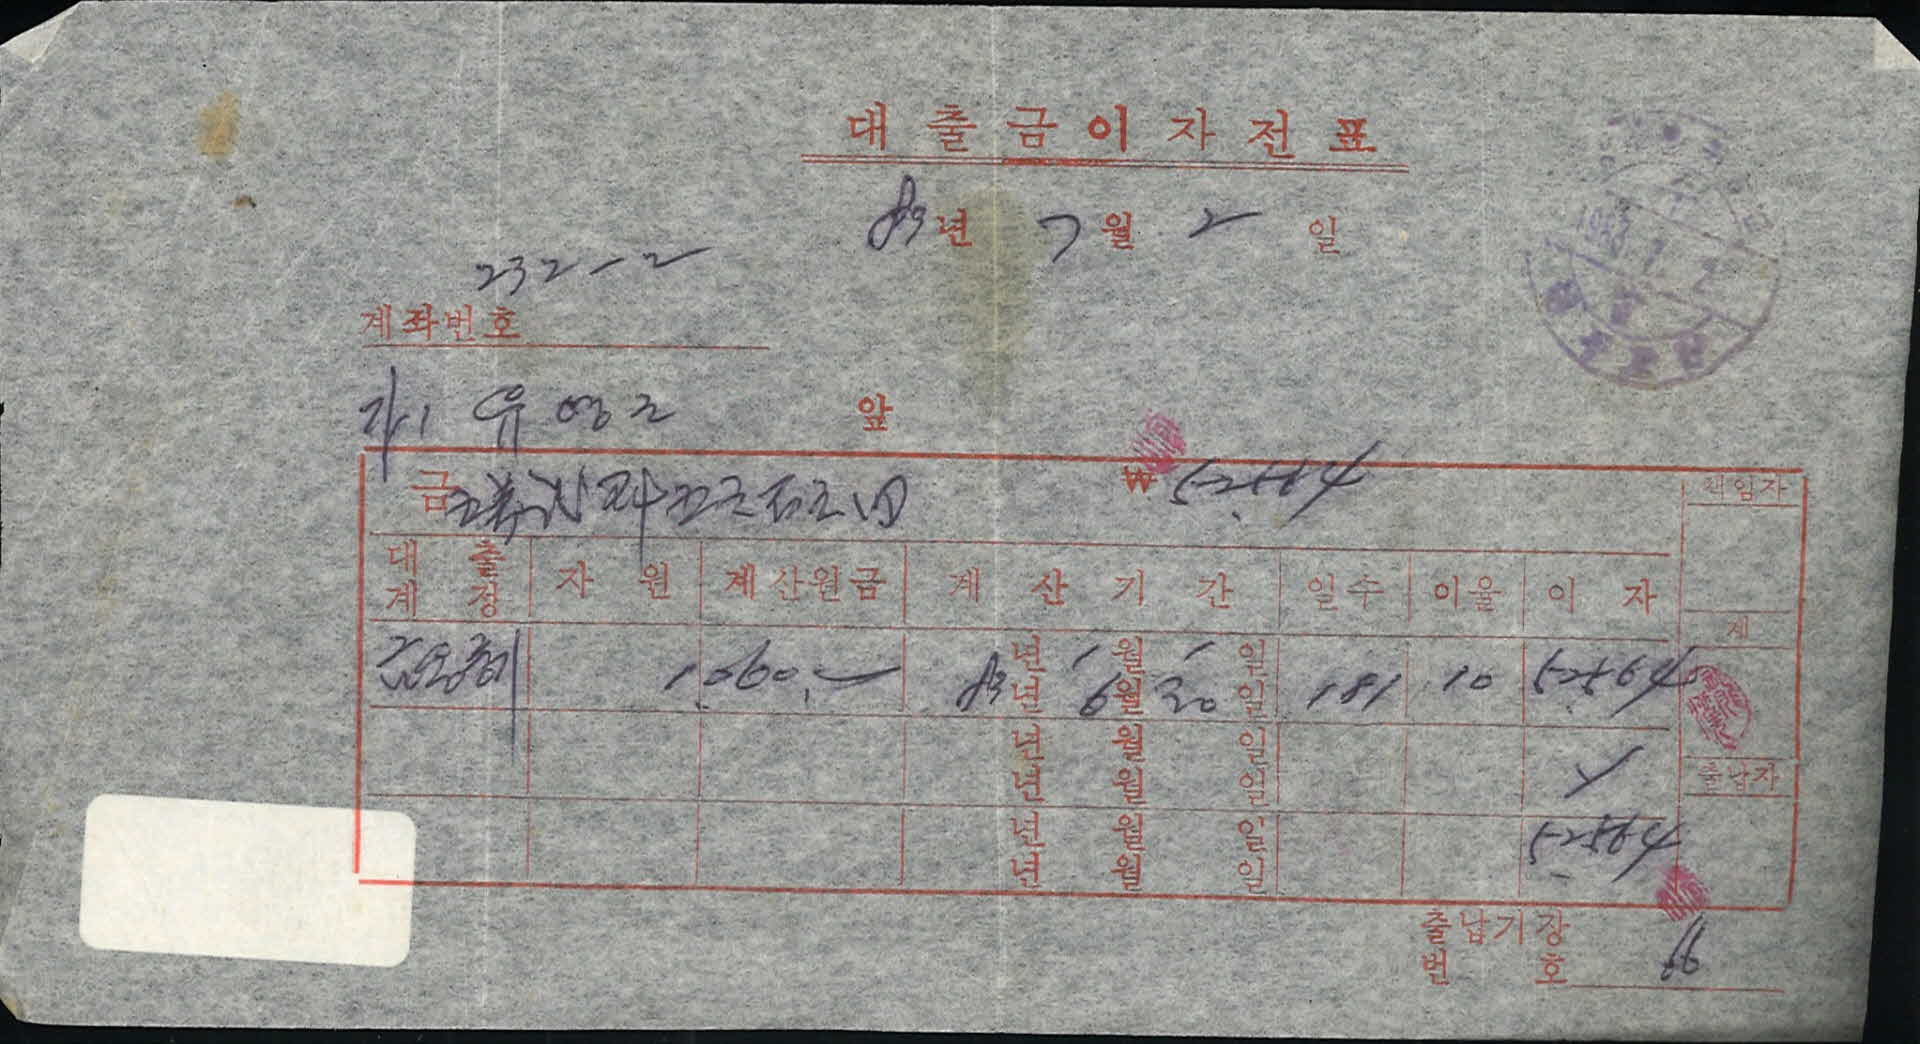 대출금이자전표
83년 7월 2일
232-2
계좌번호
유영근 앞
금 ₩ 52,564
책임자
대출계정 자원 계산원금 계산기간 일수 이율 이자
계
1,060,- 년 1월 1일 83년 6월 30일 181 10 52,564
년 월 일 년 월 일
출납자
년 월 일 년 월 일 52,564
출납기장번호 66
1983. 7. 2